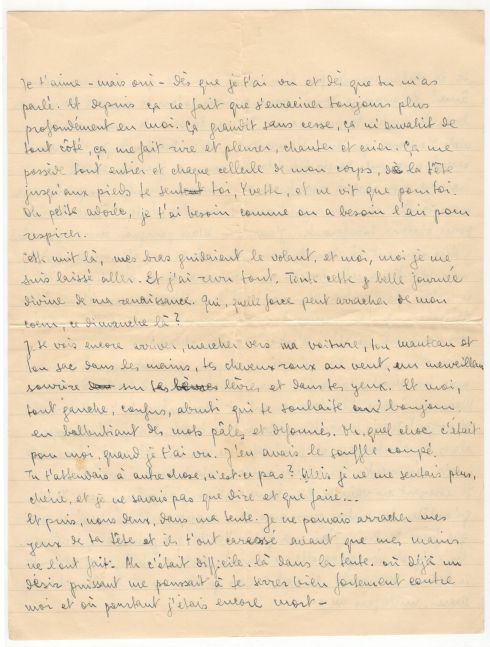 Je t'aime - mais oui - dès que je t'ai vu et dès que tu m'as
parlé. Et depuis ça ne fait que s'enraciner toujours plus
profondément en moi. Ça grandit sans cesse, ça m'envahit de
tout côté, ça me fait rire et pleurer, chanter et crier. Ça me
possède tout entier et chaque cellule de mon corps, de la tête
jusqu'aux pieds te sent toi, Yvette, et ne vit que pour toi.
Oh petite adorée, je t'ai besoin comme on a besoin l'air pour
respirer.
Cette nuit là, mes bras guidaient le volant, et moi, moi je me
suis laissé aller. Et j'ai revu tout. Toute cette belle journée
divine de ma renaissance. Qui, quelle force peut arracher de mon
coeur, ce dimanche là?
Je te vois encore arriver, marcher vers ma voiture, ton manteau et
ton sac dans les mains, tes cheveux roux au vent, un merveilleux
sourire sur tes lèvres et dans tes yeux. Et moi,
tout gauche, confus, abruti qui te souhaite un bonjour
en balbutiant des mots pâles et déformés. Oh, quel choc c'était
pour moi, quand je t'ai vu. J'en avais le souffle coupé.
Tu t'attendais à autre chose, n'est-ce pas? Mais je ne me sentais plus,
chérie, et je ne savais pas que dire et que faire...
Et puis, nous deux, dans ma tente. Je ne pouvais arracher mes
yeux de ta tête et ils t'ont caressé avant que mes mains
ne l'ont fait. Ah c'était difficile. là dans la tente. où déjà un
désir puissant me poussait à te serrer bien fortement contre
moi et où pourtant j'étais encore mort -